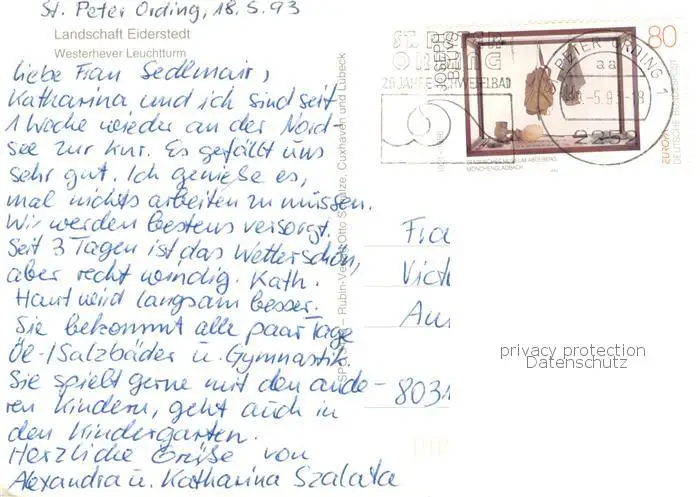 St. Peter Ording, 18.5.93
Landschaft Eiderstedt
Westerhever Leuchtturm
Liebe Frau Sedlmair,
Katharina und ich sind seit
1 Woche wieder an der Nord-
see zur Kur. Es gefällt uns
sehr gut. Ich genieße es,
mal nichts arbeiten zu müssen.
Wir werden bestens versorgt.
Seit 3 Tagen ist das Wetter schön,
aber recht windig. Kath.
Haut wird langsam besser.
Sie bekommt alle paar Tage
Öl-/Salzbäder u. Gymnastik.
Sie spielt gerne mit den ande-
ren Kindern, geht auch in
den Kindergarten.
Herzliche Grüße von
Alexandra u. Katharina Szalata
Rubin-Verlag Otto Schulze, Cuxhaven und Lübeck
ST. PETER
ORDING
25 JAHRE SCHWEFELBAD
JOSEPH
BEUYS
80
ST. PETER-ORDING 1
aa
-5.93-18
2252
STÄDTISCHES MUSEUM ABTEIBERG
MÖNCHENGLADBACH
EUROPA
DEUTSCHE BUNDESPOST
Fra
Vict
8031
privacy protection
Datenschutz